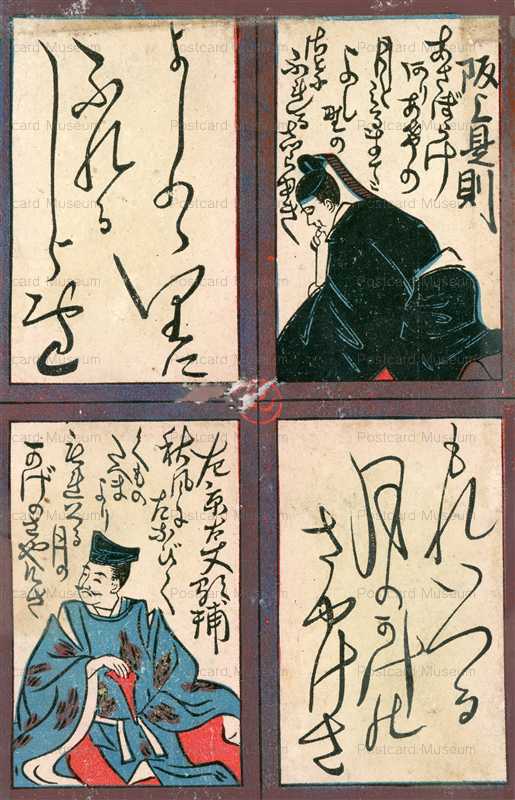 阪上是則
あさぼらけ
ありあけの
月とみるまてに
よしの
よしのゝ
里に
ふれる
しら雪
もれいつる
月のかけの
さやけさ
左京大夫顕輔
秋風に
たなびく
くもの
たえま
より
もれ出る
月の
かげのさやけさ
Postcard Museum